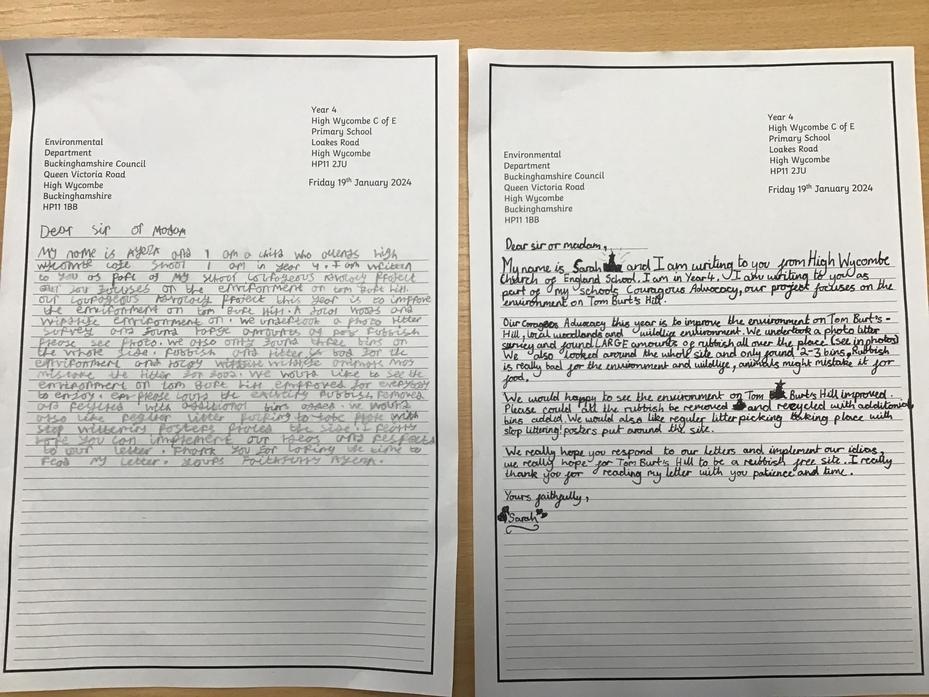 Year 4
High Wycombe C of E
Primary School
Loakes Road
High Wycombe
HP11 2JU
Friday 19th January 2024
Environmental
Department
Buckinghamshire Council
Queen Victoria Road
High Wycombe
Buckinghamshire
HP11 1BB
Dear Sir or Madam
My name is and I am a child who high
I am in year 4. I am
to you as part of My School Project
focuses on the environment on Hill.
our Project this year is to improve
the environment on Hill. A woods and
environment on. we undertook a photo
Survey and found large amounts of rubbish
Please see photo. we also only found three bins on
the whole side. rubbish and litter is bad for the
environment and animals may
mistake the litter for food. we would like to see the
environment on Hill for everybody
to enjoy. Please the rubbish removed
and with additional bins added. we would
also like litter to take place with
stop posters the side. I
hope you can implement our ideas and
to our letter. thank you for taking the time to
read my letter. yours
Year 4
High Wycombe C of E
Primary School
Loakes Road
High Wycombe
HP11 2JU
Friday 19th January 2024
Environmental
Department
Buckinghamshire Council
Queen Victoria Road
High Wycombe
Buckinghamshire
HP11 1BB
Dear sir or madam,
My name is Sarah and I am writing to you from High Wycombe
Church of England School. I am in Year 4. I am writing to you as
part of my schools Courageous Advocacy, our project focuses on the
environment on Tom Burt's Hill.
Our Advocacy this year is to improve the environment on Tom Burt's-
Hill, local woodlands and wildlige environment. We undertook a photo litter
survey and found LARGE amounts of rubbish all over the place (see in photos)
We also looked around the whole site and only found 2-3 bins, Rubbish
is really bad for the environment and wildlige, animals might mistake it for
food.
We would happy to see the environment on Tom Burt's Hill improved.
Please could all the rubbish be removed and recycled with additional
bins added. We would also like regular litterpicking taking place with
stop littering! posters put around the site.
We really hope you respond to our letters and implement our idias,
we really hope for Tom Burt's Hill to be a rubbish free site. I really
thank you for reading my letter with you patience and time.
Yours faithfully,
Sarah